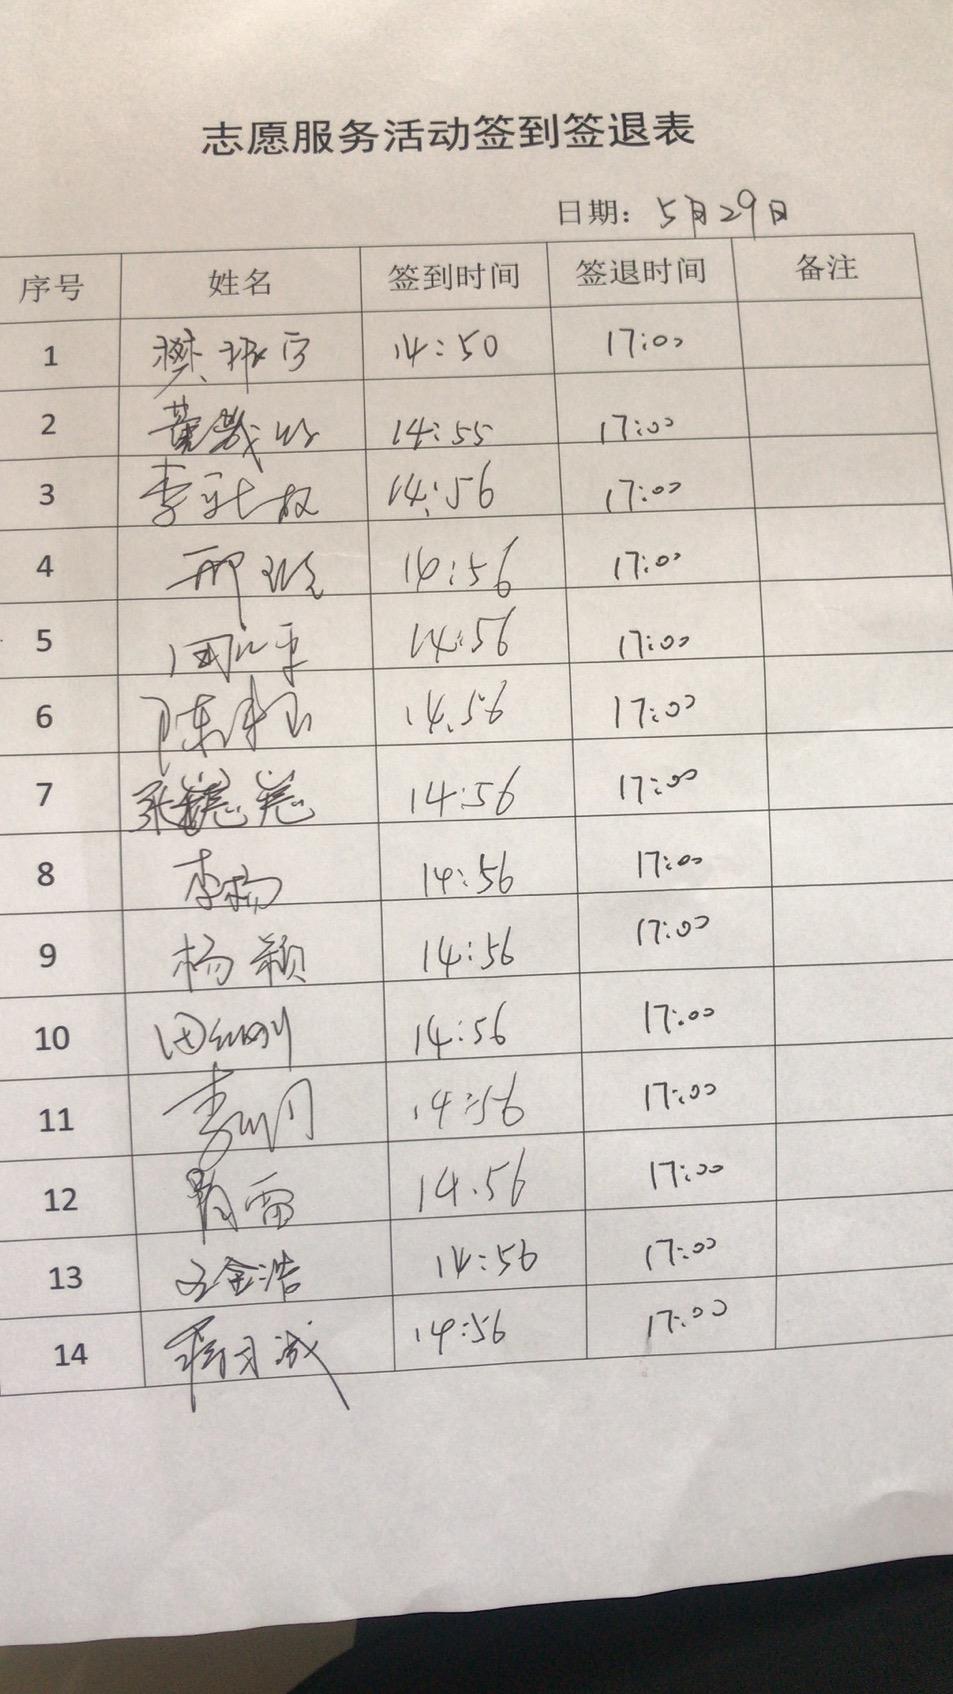 志愿服务活动签到签退表
日期: 5月29日
序号 姓名 签到时间 签退时间 备注
1 樊振宇 14:50 17:00
2 黄 14:55 17:00
3 李 14:56 17:00
4 邢 14:56 17:00
5 14:56 17:00
6 陈 14.56 17:00
7 14:56 17:00
8 李杨 14:56 17:00
9 杨颖 14:56 17:00
10 田红刚 14:56 17:00
11 李 14:56 17:00
12 肖雷 14.56 17:00
13 王金浩 14:56 17:00
14 14:56 17:00